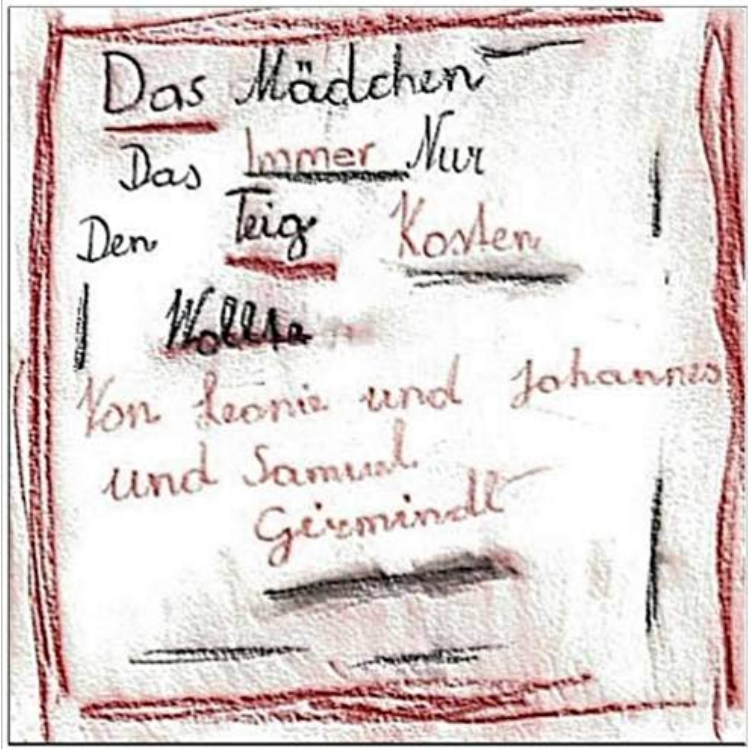 Das Mädchen
Das Immer Nur
Den Teig Kosten
Wollte
Von Leonie und Johannes
und Samuel
Girmindl